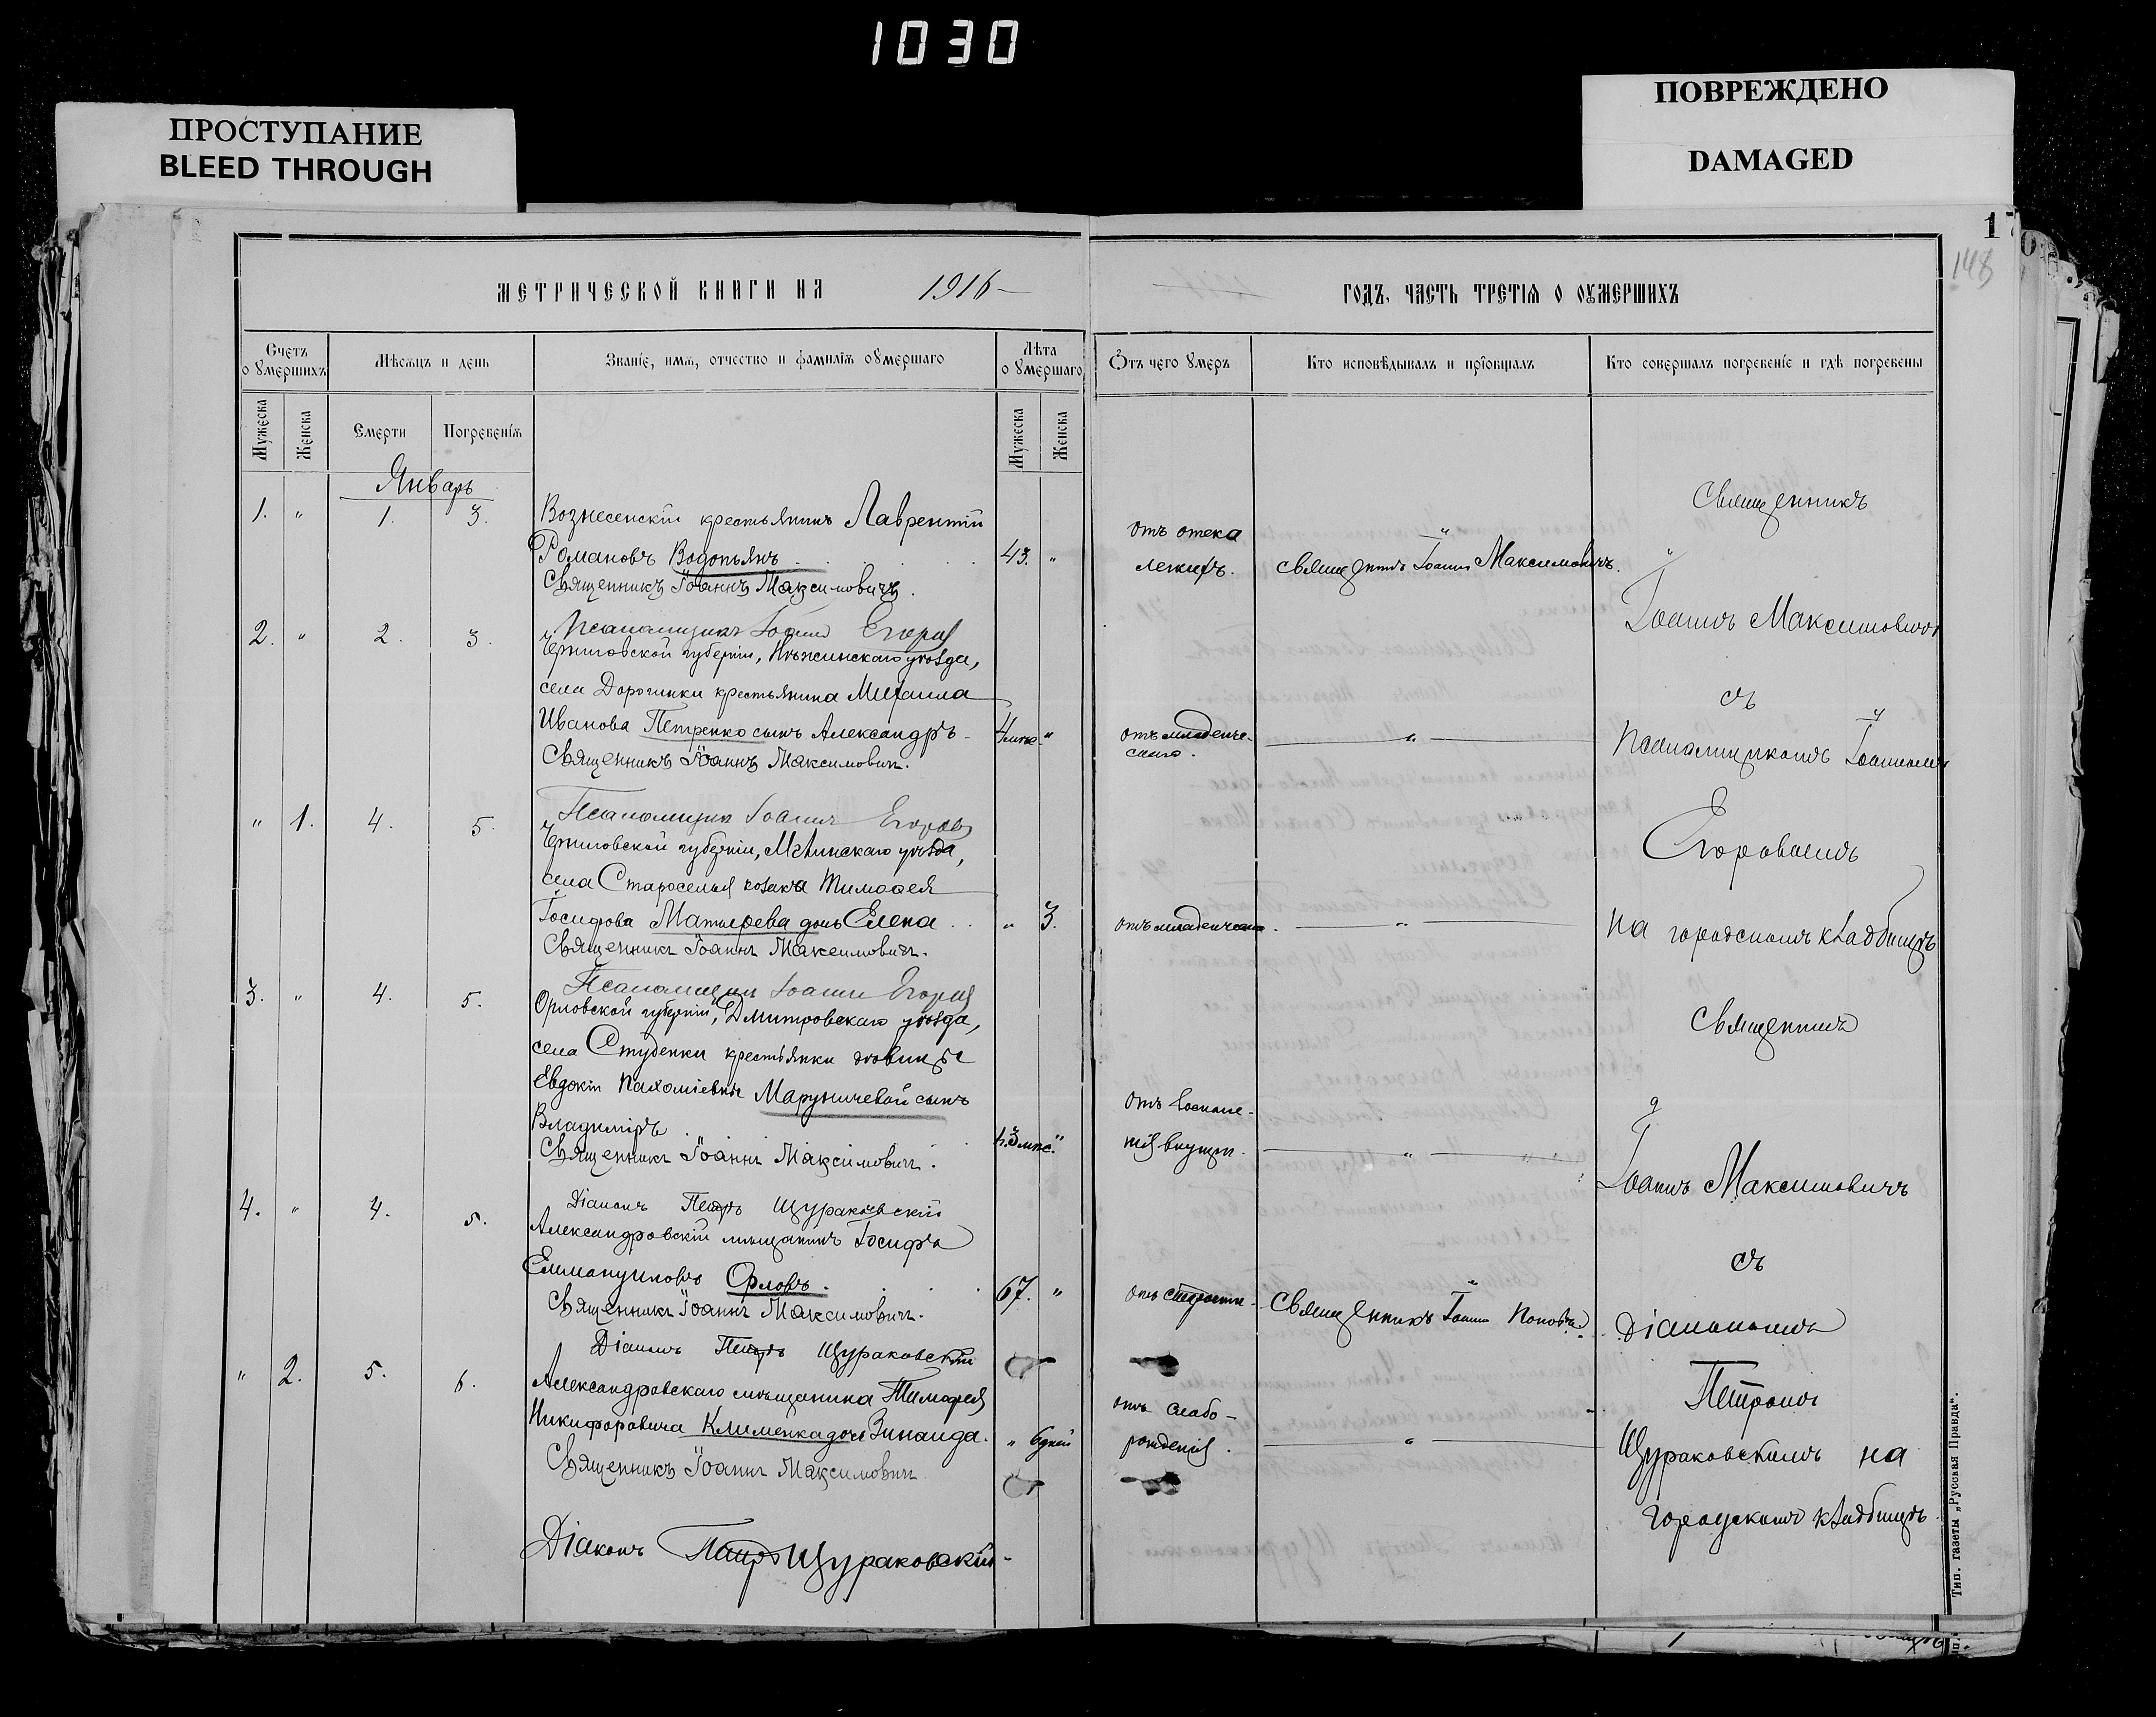 1030
ПРОСТУПАНИЕ
BLEED THROUGH
ПОВРЕЖДЕНО
DAMAGED
148
МЕТРИЧЕСКОЙ КНИГИ НА 1916
ГОДЪ, ЧАСТЬ ТРЕТІЯ О ОУМЕРШИХЪ
Счетъ о умершихъ
Мѣсяцъ и день
Званіе, имя, отчество и фамилія оумершаго
Лѣта оумершаго
Отъ чего умеръ
Кто исповѣдывалъ и пріобщалъ
Кто совершалъ погребеніе и гдѣ погребены
Мужеска Женска
Смерти Погребенія
Мужеска Женска
Январь
1. " 1. 3. Вознесенскій крестьянинъ Лаврентій
Романовъ Водопьянъ 43. "
отъ отека
легкихъ.
Священникъ Іоаннъ Максимовичъ.
Священникъ Іоаннъ Максимовичъ.
Псаломщикъ Іоаннъ Егоровъ
2. " 2. 3. Черниговской губерніи, Нѣжинскаго уѣзда,
села Дорогинки крестьянина Михаила
Иванова Петренко сынъ Александръ 4 мѣс. "
отъ младенче-
скаго.
Священникъ Іоаннъ Максимович.
Псаломщикъ Іоаннъ Егоровъ
" 1. 4. 5. Черниговской губерніи, Мглинскаго уѣзда,
села Староселья козака Тимофея
Іосифова дочь Елена " 3.
отъ младенческаго.
Священникъ Іоаннъ Максимович.
Псаломщикъ Іоаннъ Егоровъ
3. " 4. 5. Орловской губерніи, Дмитровскаго уѣзда,
села Студенки крестьянки дѣвицы
Евдокіи Пахоміевны Маруничевой сынъ
Владиміръ
Священникъ Іоаннъ Максимович.
Діаконъ Петръ Щураковскій
4. " 4. 5. Александровскій мѣщанинъ Іосифъ
Еммануиловъ Орловъ. 67. "
отъ старости
Священникъ Іоаннъ Поповъ.
Священникъ Іоаннъ Максимович.
Діаконъ Петръ Щураковскій
" 2. 5. 6. Александровскаго мѣщанина Тимофея
Никифоровича Клименка дочь Зинаида. " 6 дней
отъ слабо-
рожденія.
Священникъ Іоаннъ Максимович
Діаконъ Петръ Щураковскій
Священникъ
Іоаннъ Максимовичъ
съ
Псаломщикомъ Іоанномъ
Егоровымъ
на городскомъ кладбищѣ
Священникъ
Іоаннъ Максимовичъ
съ
Діакономъ
Петромъ
Щураковскимъ на
городскомъ кладбищѣ
Тип. газеты „Русская Правда“.